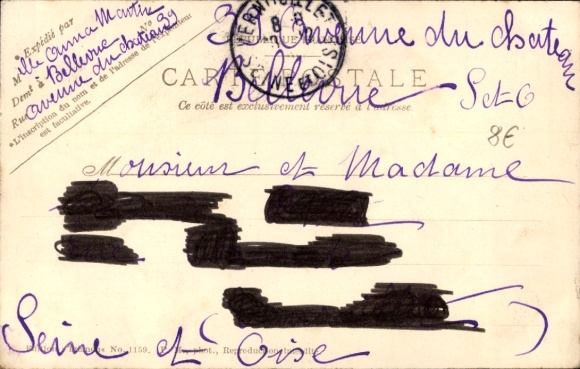 *Expédié par
Mlle Anna Martin
Demt à Bellevue No
Rue avenue du château 39
*L'inscription du nom et de l'adresse de l'expéditeur
est facultative.
VERNOUILLET
39 Avenue du château
CARTE POSTALE
Ce côté est exclusivement réservé à l'adresse.
Bellevue S et O
8€
Monsieur et Madame
Seine et Oise
No. 1159. phot., Reproduction